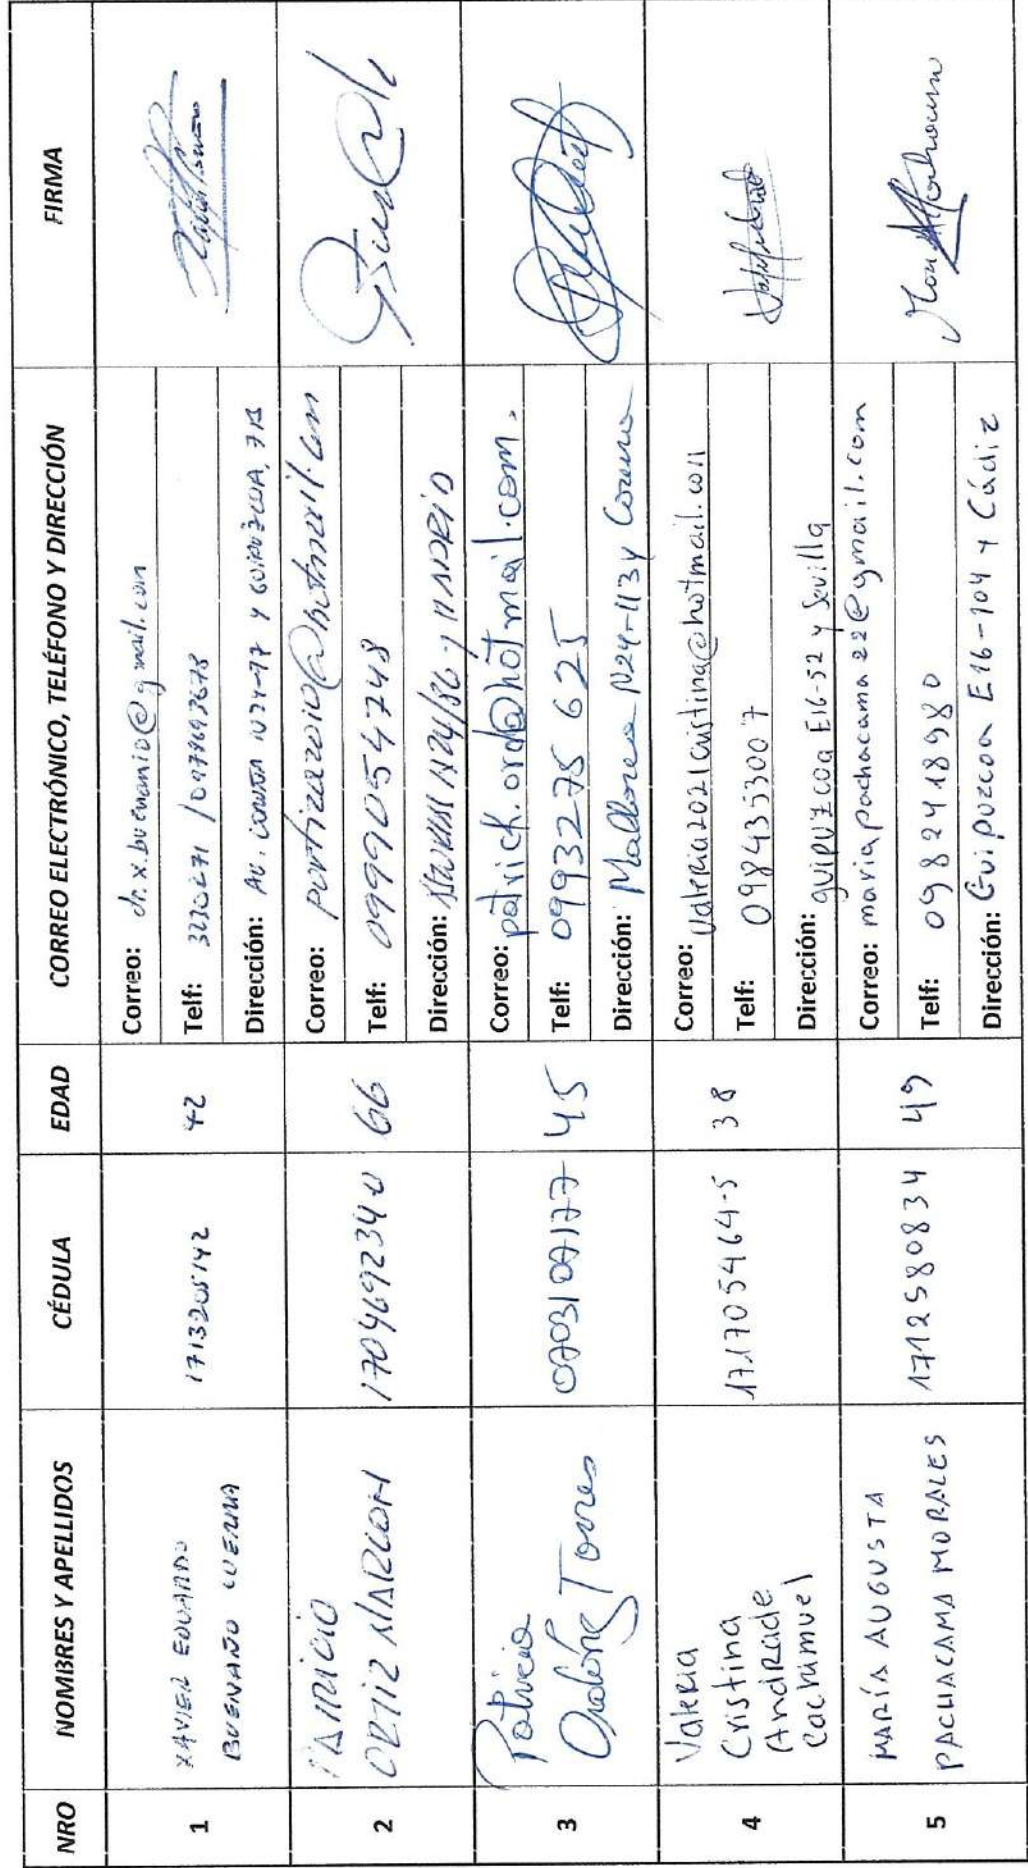 NRO NOMBRES Y APELLIDOS CÉDULA EDAD CORREO ELECTRÓNICO, TELÉFONO Y DIRECCIÓN FIRMA
1
XAVIER EDUARDO
BUENAÑO
1713205142
42
Correo: dr.x.buenanio@gmail.com
Telf: 3230271 /
Dirección: AV. N24-77 Y GUIPUZCOA, 7B
2
PATRICIO
ORTIZ
170469234-0
66
Correo: portizrazoio@hotmail.com
Telf: 0999054748
Dirección: N24/86 y MADRID
3
Patricio
Ordóñez Torres
0703107177
45
Correo: patrick.ord@hotmail.com.
Telf: 0993275625
Dirección: Mallorca N24-113 y Coruna
4
Valeria
Cristina
Andrade
Cachimuel
171705464-5
38
Correo: valeria2021cristina@hotmail.com
Telf: 0984353007
Dirección: guipuzcoa E16-52 y Sevilla
5
MARÍA AUGUSTA
PACHACAMA MORALES
1712580834
49
Correo: mariapachacama22@gmail.com
Telf: 0982418980
Dirección: Guipuzcoa E16-104 y Cádiz